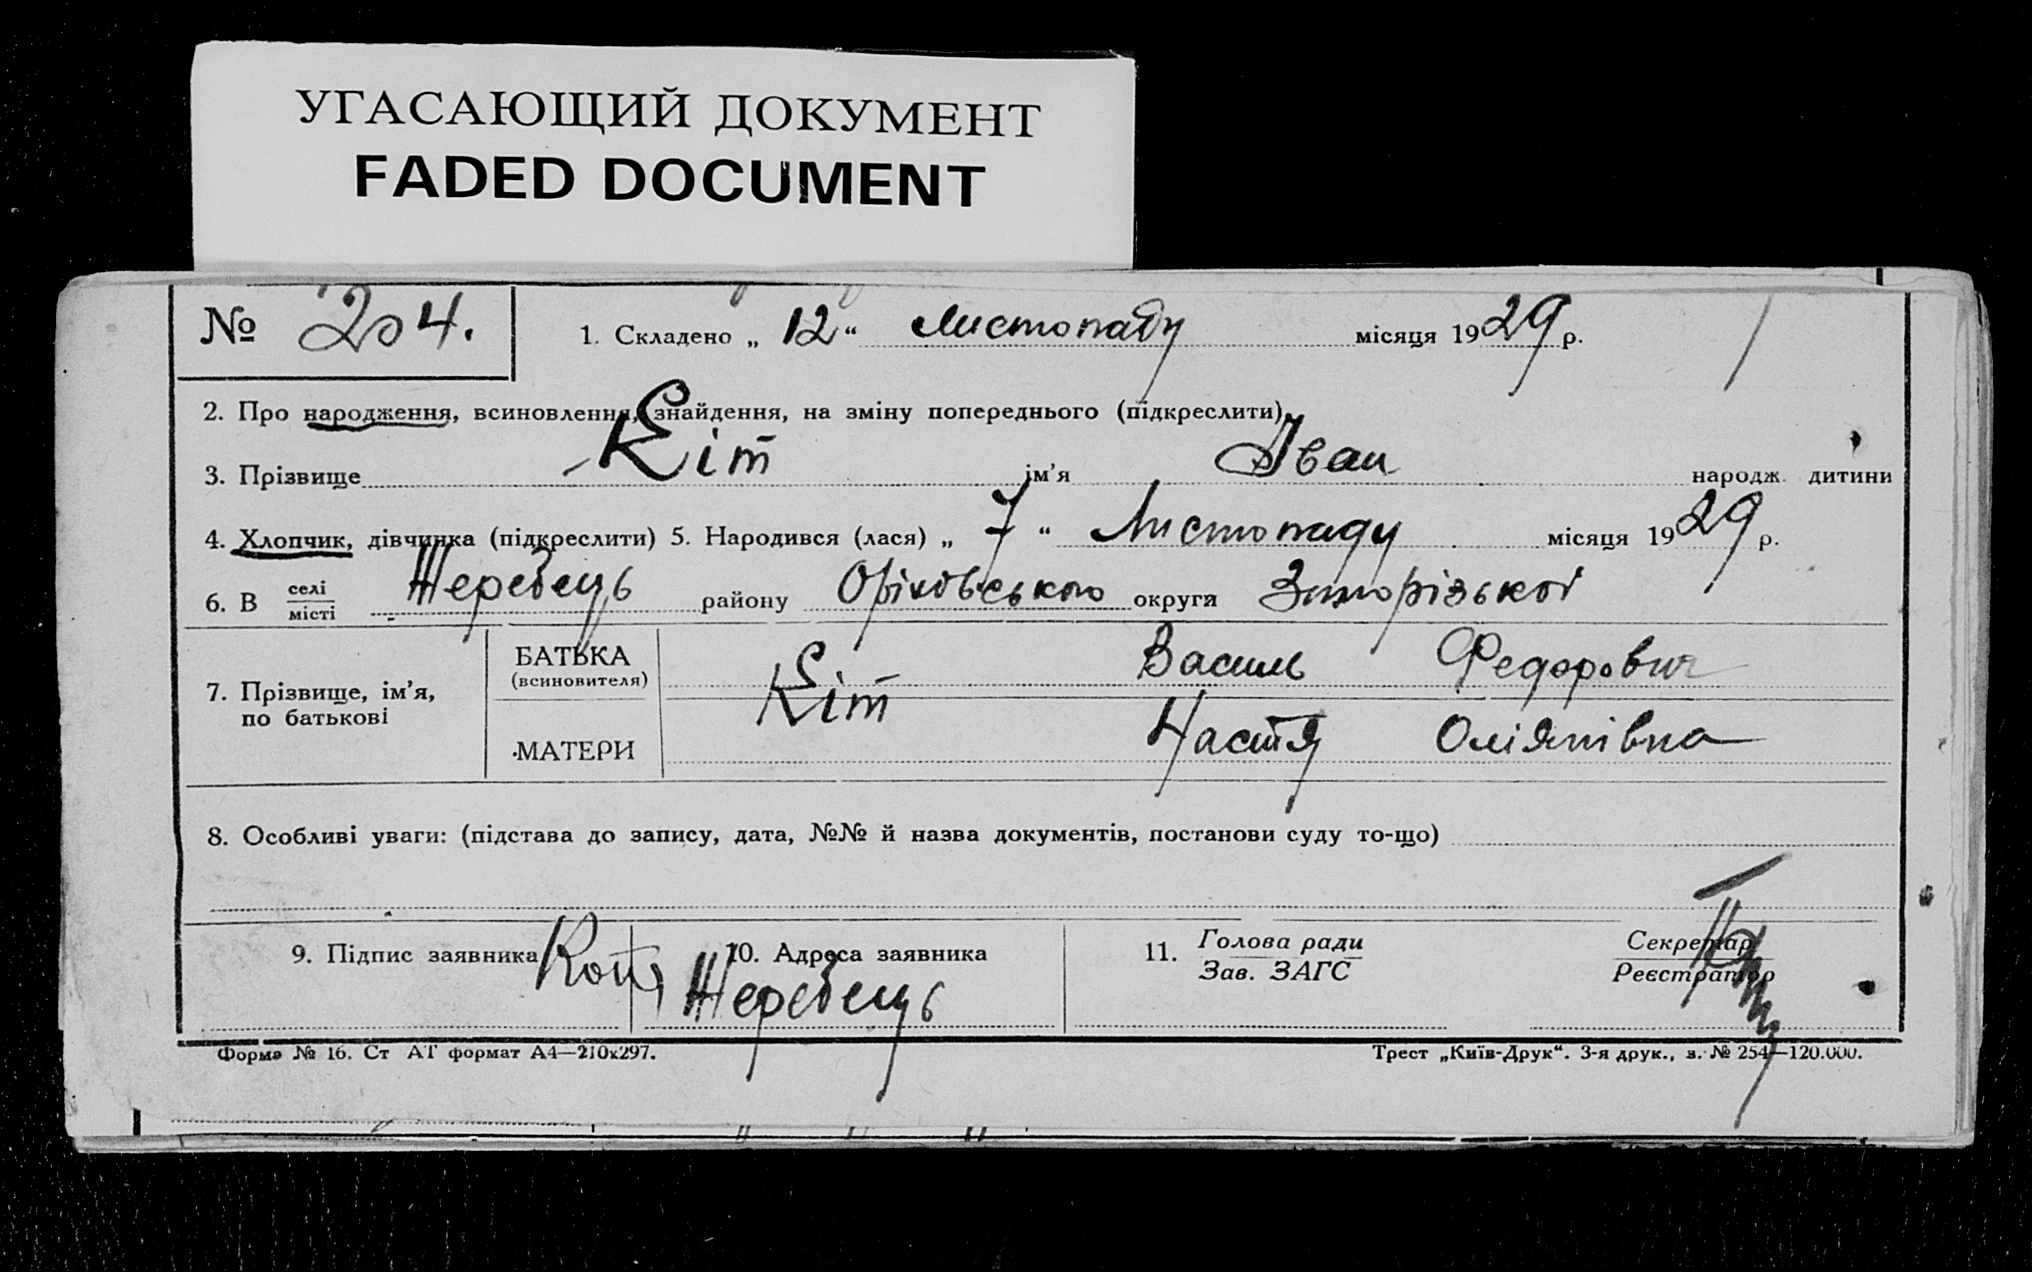 УГАСАЮЩИЙ ДОКУМЕНТ
FADED DOCUMENT
№ 204.
1. Складено „ 12 “ Листопаду місяця 1929 р.
2. Про народження, всиновлення, знайдення, на зміну попереднього (підкреслити)
3. Прізвище Кіт ім’я Іван народж. дитини
4. Хлопчик, дівчинка (підкреслити) 5. Народився (лася) „ 7 “ Листопаду місяця 1929 р.
6. В селі місті Жеребець району Оріхівського округи Запорізької
7. Прізвище, ім’я, по батькові
БАТЬКА (всиновителя) Кіт Василь Федорович
МАТЕРИ Настя
8. Особливі уваги: (підстава до запису, дата, №№ й назва документів, постанови суду то-що)
9. Підпис заявника
10. Адреса заявника Жеребець
11. Голова ради Зав. ЗАГС
Секретар Реєстратор
Форма № 16. Ст АТ формат А4—210х297.
Трест „Київ-Друк“. 3-я друк., з. № 254—120.000.